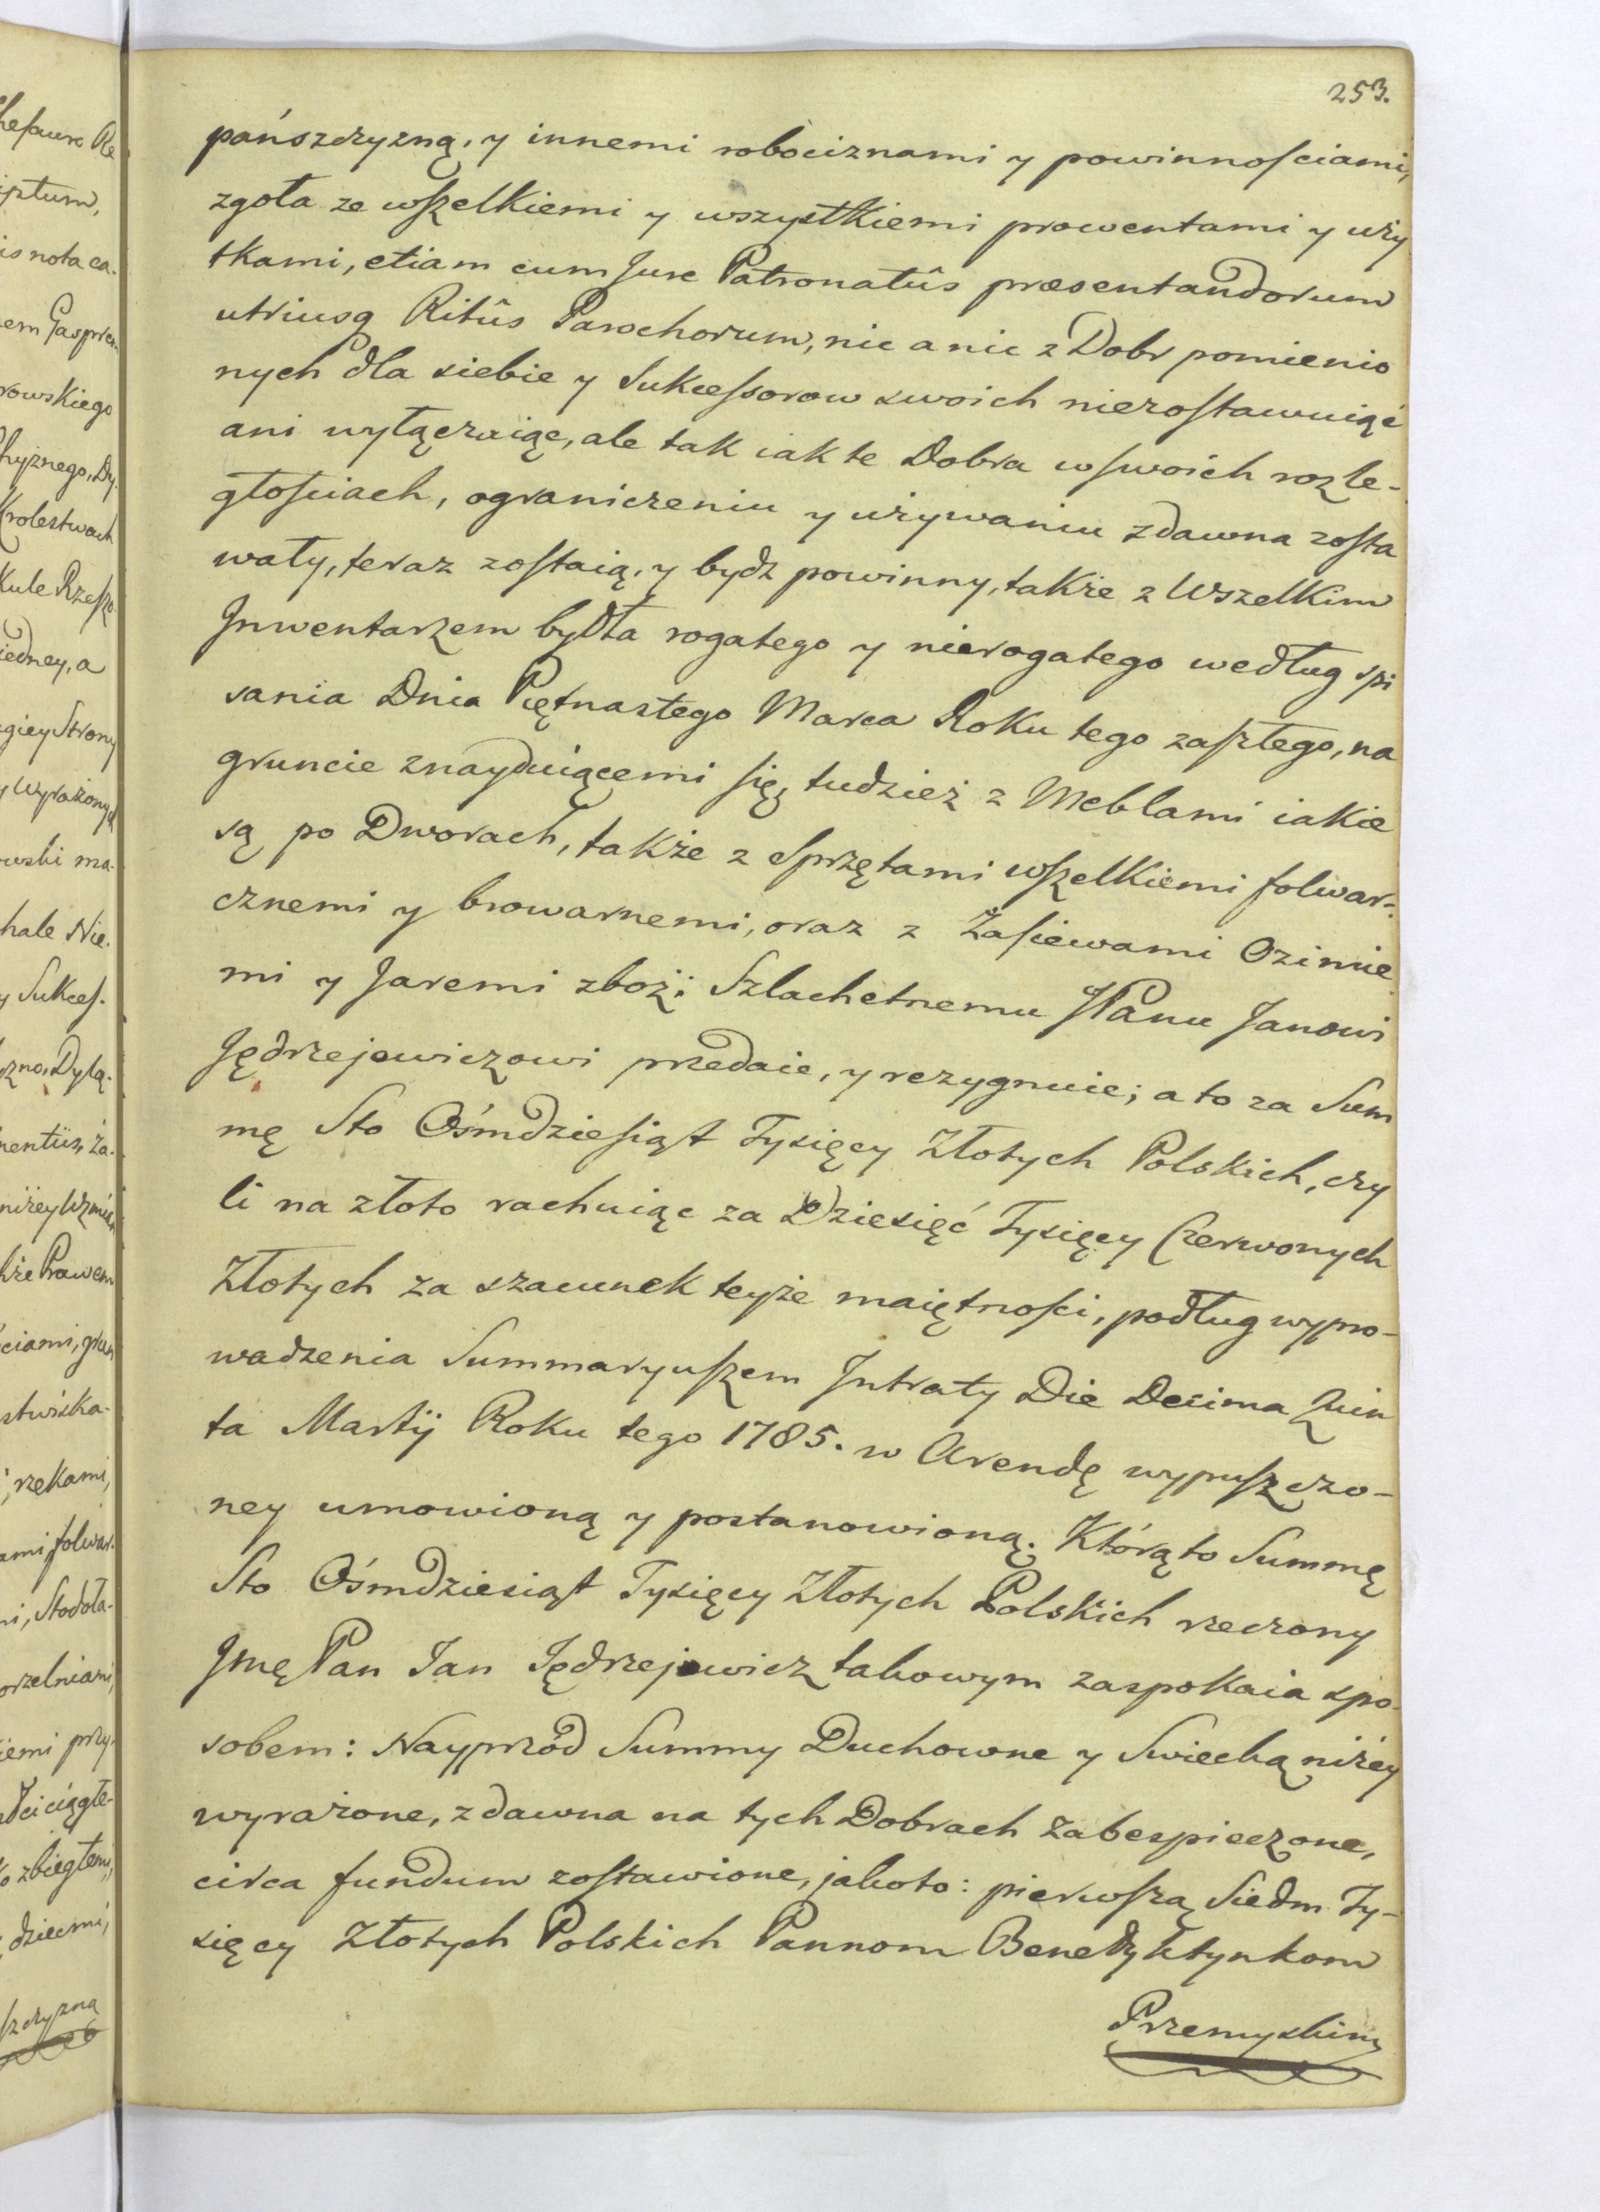 253.
pańszczyzną, y innemi robociznami y powinnościami,
zgoła ze wszelkiemi y wszystkiemi prowentami y uży
tkami, etiam cum Jure Patronatûs præsentandorum
utriusq Ritûs Parochorum, nic a nic z Dobr pomienio
nych dla siebie y Sukcessorow swoich niezostawuiąc
ani wyłączaiąc, ale tak iak te Dobra w swoich rozle-
głościach, ograniczeniu y używaniu zdawna zosta
wały, teraz zostaią, y bydz powinny, także z Wszelkim
Jnwentarzem bydła rogatego y nierogatego według spi
sania Dnia Piętnastego Marca Roku tego zaszłego, na
gruncie znayduiącemi się, tudzież z Meblami iakie
są po Dworach, także z Sprzętami wszelkiemi folwar-
cznemi y browarnemi, oraz z Zasiewami Ozimie
mi y Jaremi zboż; Szlachetnemu JPanu Janowi
Jędrzejewiczowi przedaie, y rezygnuie; a to za Sum
mę Sto Ośmdziesiąt Tysięcy Złotych Polskich, czy
li na złoto rachuiąc za Dziesięć Tysięcy Czerwonych
Złotych za szacunek teyże maiętności, podług wypro-
wadzenia Summaryuszem Jntraty Die Decima Quin
ta Martij Roku tego 1785. w Arendę wypuszczo-
ney umowioną y postanowioną. Którą to Summę
Sto Ośmdziesiąt Tysięcy Złotych Polskich rzeczony
Jmę Pan Jan Jędrzejowicz takowym zaspokaia spo
sobem: Nayprzód Summy Duchowne y Swiecką niżey
wyrażone, zdawna na tych Dobrach zabespieczone,
circa fundum zostawione, jakoto: pierwszą Siedm Ty-
sięcy Złotych Polskich Pannom Benedyktynkom
Przemyskim